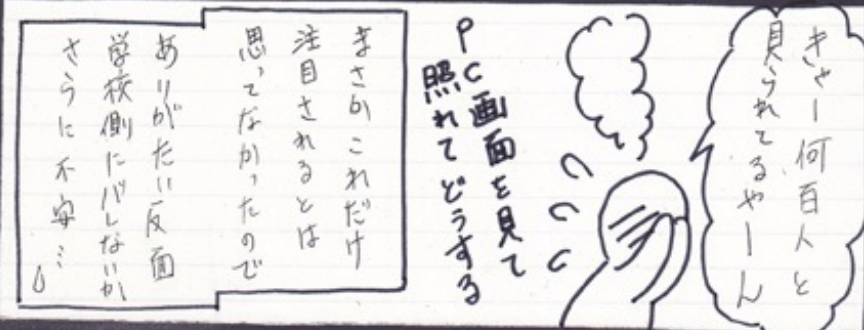 きゃー何百人と
見られてるやーん
PC画面を見て
照れてどうする
まさかこれだけ
注目されるとは
思ってなかったので
ありがたい反面
学校側にバレないか
さらに不安…